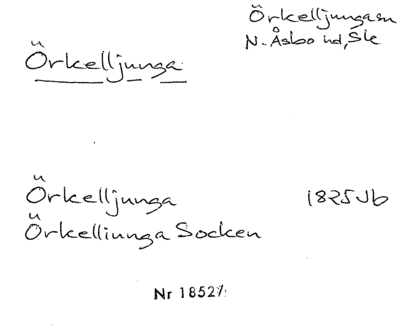 Örkelljunga sn
N. Åsbo hd, Sk
Örkelljunga
Örkelljunga 1825 Jb
Örkelliunga Socken
Nr 18527